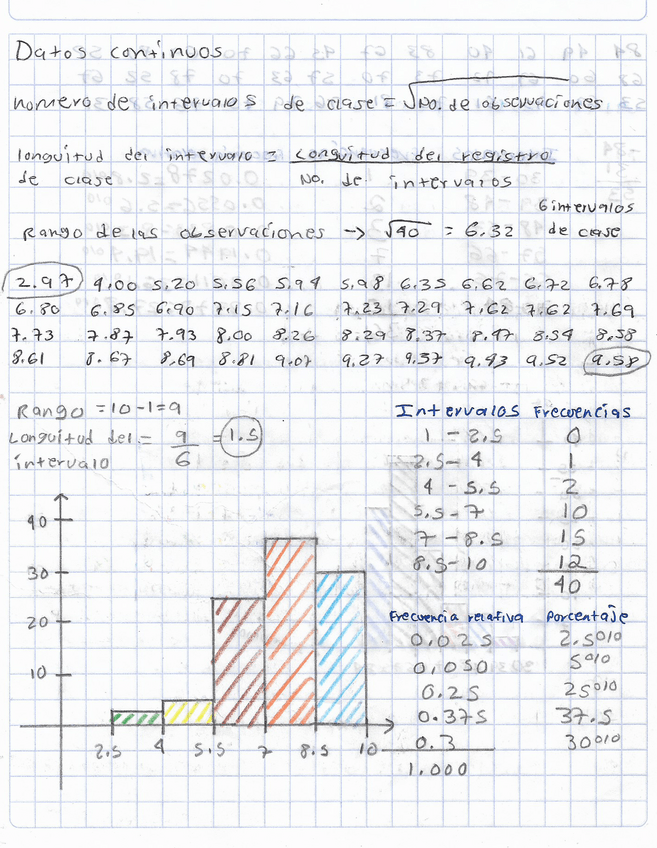 Datos continuos
numero de intervalos de clase = √No. de observaciones
longuitud del intervalo = Longuitud del registro
de clase No. de intervalos
6 intervalos
Rango de las observaciones → √40 = 6.32 de clase
2.97 4.00 5.20 5.56 5.94 5.98 6.35 6.62 6.72 6.78
6.80 6.85 6.90 7.15 7.16 7.23 7.29 7.62 7.62 7.69
7.73 7.87 7.93 8.00 8.26 8.29 8.37 8.47 8.54 8.58
8.61 8.67 8.69 8.81 9.07 9.27 9.37 9.43 9.52 9.58
Rango = 10-1=9
Longuitud del = 9/6 = 1.5
intervalo
Intervalos Frecuencias
1 - 2.5 0
2.5- 4 1
4 - 5.5 2
5.5- 7 10
7 - 8.5 15
8.5-10 12
40
Frecuencia relativa Porcentaje
0.025 2.5%
0.050 5%
0.25 25%
0.375 37.5
0.3 30%
1.000
40
30
20
10
2.5 4 5.5 7 8.5 10